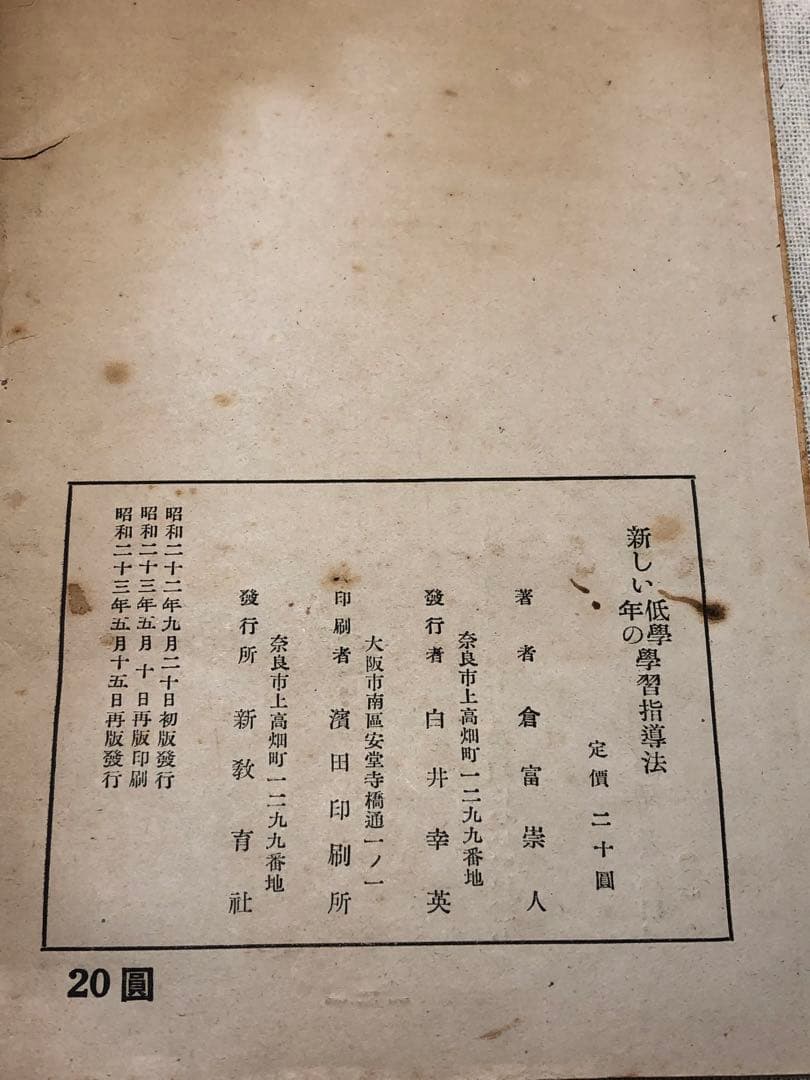 新しい低學年の學習指導法
定價 二十圓
著者 倉富崇人
奈良市上高畑町一二九九番地
發行者 白井幸英
大阪市南區安堂寺橋通一ノ一
印刷者 濱田印刷所
奈良市上高畑町一二九九番地
發行所 新敎育社
昭和二十二年九月二十日初版發行
昭和二十三年五月十日再版印刷
昭和二十三年五月十五日再版發行
20圓